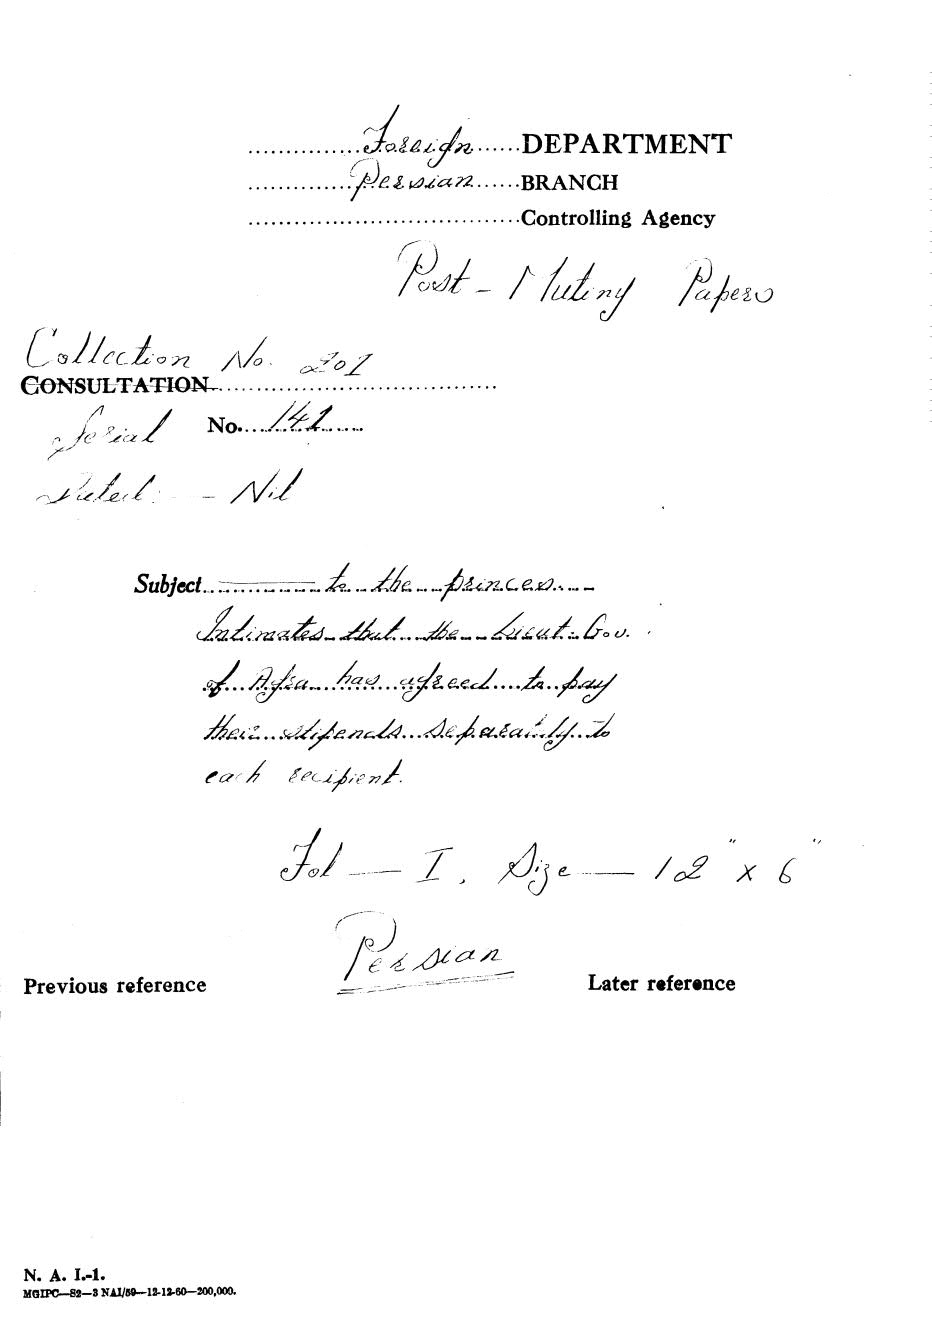 Foreign DEPARTMENT
Persian BRANCH
Controlling Agency
Post - Mutiny Papers
Collection No. 201
CONSULTATION
Serial No. 141
Dated: - Nil
Subject ——— to the princes.
Intimates that the Lieut: Gov.
of Agra has agreed to pay
their stipends separately to
each recipient.
Fol — I, Size — 12" x 6"
Persian
Previous reference Later reference
N. A. I.-1.
MGIPC—S2—3 NAI/59—12-12-60—200,000.